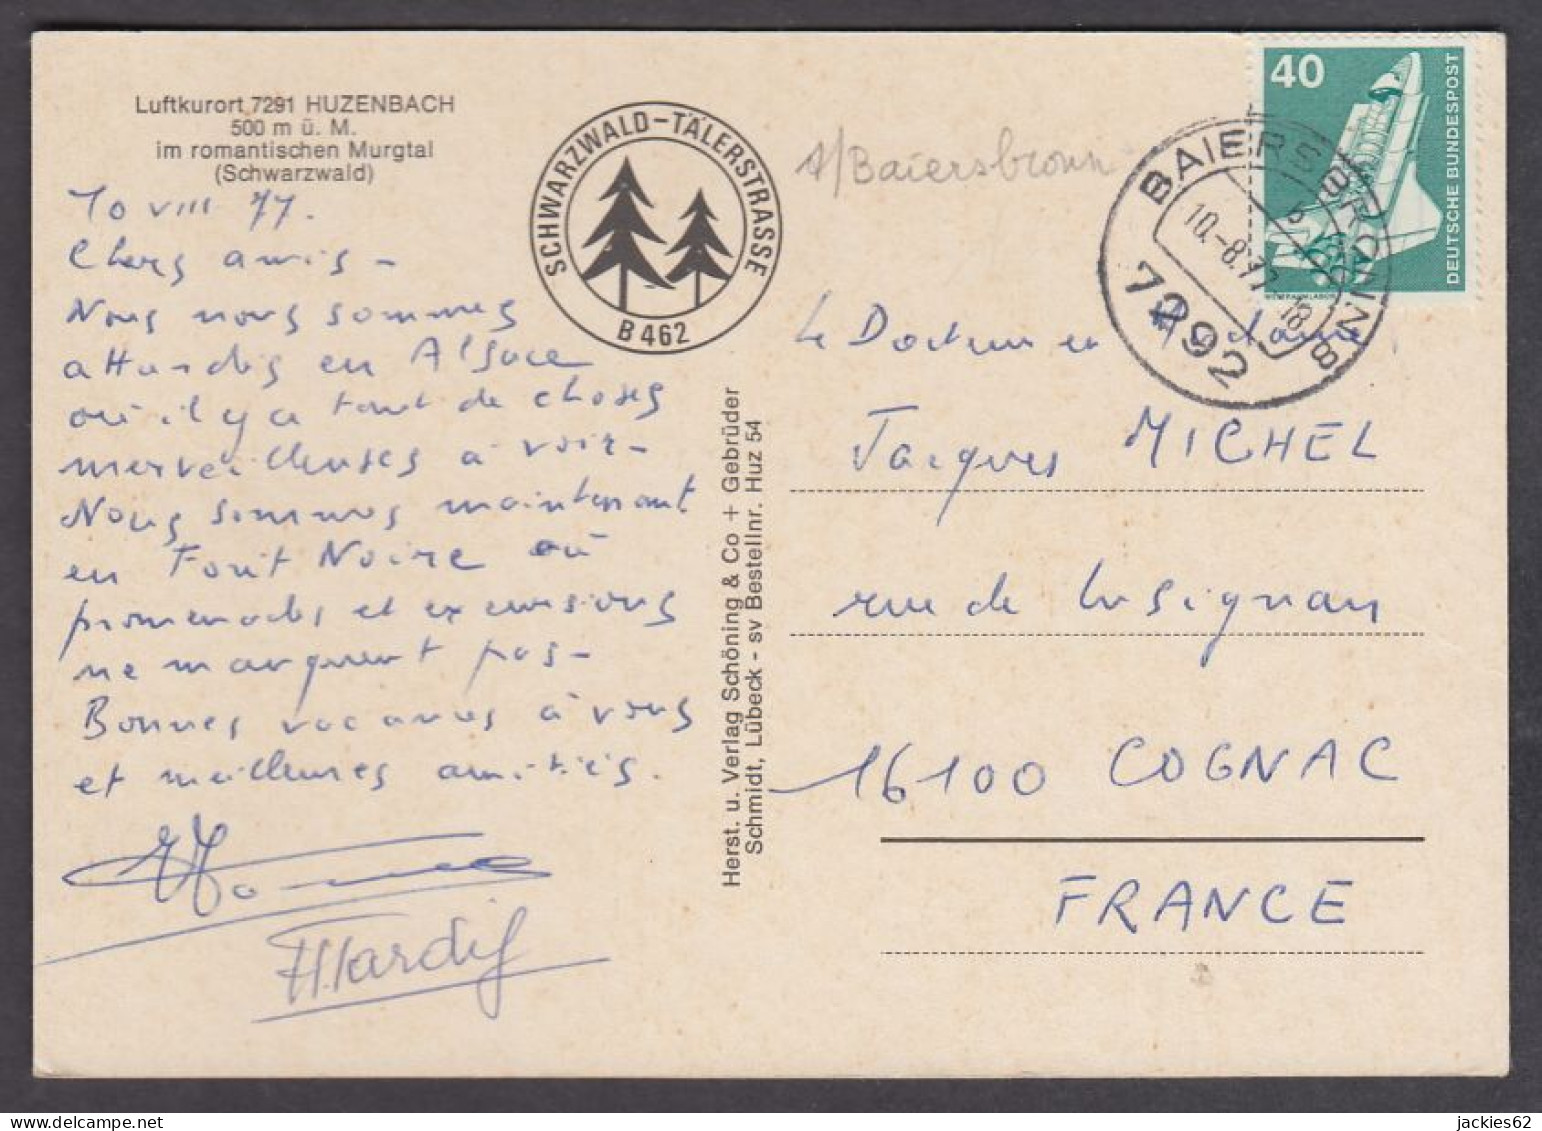 Luftkurort 7291 HUZENBACH
500 m ü. M.
im romantischen Murgtal
(Schwarzwald)
10 VIII 77.
Chers amis -
Nous nous sommes
attardés en Alsace
où il y a tant de choses
merveilleuses à voir -
Nous sommes maintenant
en Forêt Noire où
promenades et excursions
ne manquent pas -
Bonnes vacances à vous
et meilleures amitiés.
H Tardif
SCHWARZWALD-TÄLERSTRASSE
B 462
Herst. u. Verlag Schöning & Co + Gebrüder
Schmidt, Lübeck - sv Bestellnr. Huz 54
A/Baiersbronn
40
DEUTSCHE BUNDESPOST
WELTRAUMLABOR
BAIERSBRONN 1
b
10.-8.77-18
7292
B
Le Docteur et Madame
Jacques MICHEL
rue de Lusignan
16100 COGNAC
FRANCE
jackies62